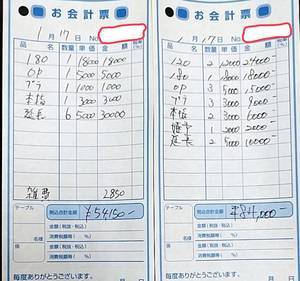 お会計票
1月17日
品名 数量 単価 金額
180 1 18000 18000
OP 1 5000 5000
プラ 1 1000 1000
本指 1 3000 3000
延長 6 5000 30000
雑費 2850
テーブル 税込合計金額 ¥54150-
金額(税抜・税込)
消費税額等( %)
金額(税抜・税込)
消費税額等( %)
係 名様
毎度ありがとうございます。
お会計票
1月17日
品名 数量 単価 金額 税率(%)
120 2 12000 24000-
180 1 18000 18000
OP 3 5000 15000-
プラ 3 3000 9000-
本指 2 3000 6000
1 2000 2000-
延長 2 5000 10000-
テーブル 税込合計金額 ¥84,000-
金額(税抜・税込)
消費税額等( %)
金額(税抜・税込)
消費税額等( %)
係 名様
毎度ありがとうございます。